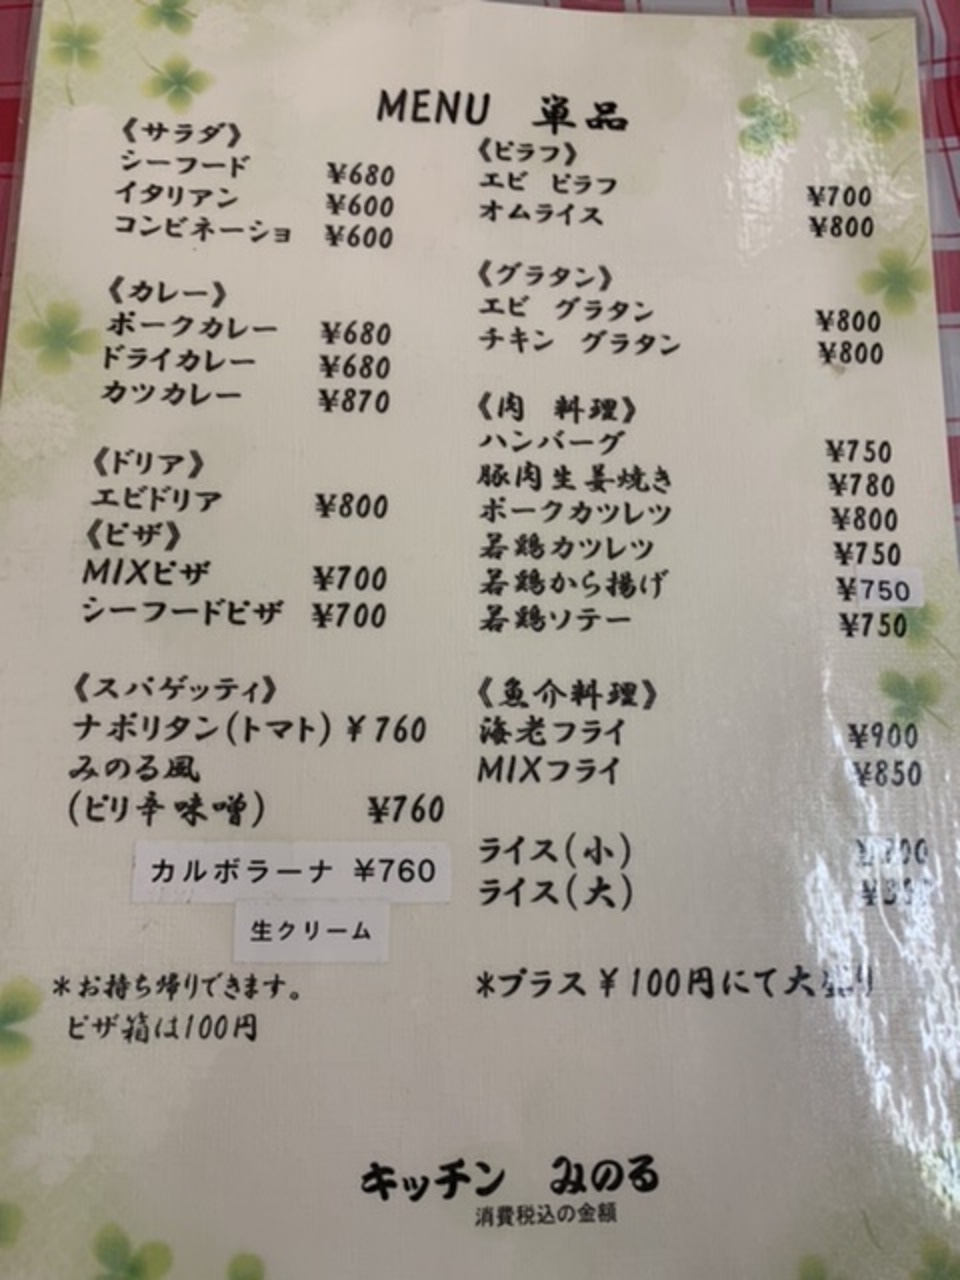 MENU 単品
《サラダ》
シーフード ¥680
イタリアン ¥600
コンビネーショ ¥600
《カレー》
ポークカレー ¥680
ドライカレー ¥680
カツカレー ¥870
《ドリア》
エビドリア ¥800
《ピザ》
MIXピザ ¥700
シーフードピザ ¥700
《スパゲッティ》
ナポリタン(トマト) ¥760
みのる風
(ピリ辛味噌) ¥760
カルボラーナ ¥760
生クリーム
*お持ち帰りできます。
ピザ箱は100円
《ピラフ》
エビ ピラフ ¥700
オムライス ¥800
《グラタン》
エビ グラタン ¥800
チキン グラタン ¥800
《肉 料理》
ハンバーグ ¥750
豚肉生姜焼き ¥780
ポークカツレツ ¥800
若鶏カツレツ ¥750
若鶏から揚げ ¥750
若鶏ソテー ¥750
《魚介料理》
海老フライ ¥900
MIXフライ ¥850
ライス(小)
ライス(大)
*プラス¥100円にて大盛り
キッチン みのる
消費税込の金額